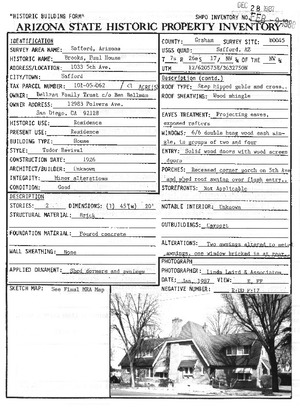 "HISTORIC BUILDING FORM"
SHPO INVENTORY NO.
DEC 28 1987
ARIZONA STATE HISTORIC PROPERTY INVENTORY
IDENTIFICATION
SURVEY AREA NAME: Safford, Arizona
HISTORIC NAME: Brooks, Paul House
ADDRESS/LOCATION: 1033 5th Ave.
CITY/TOWN: Safford
TAX PARCEL NUMBER: 101-05-062
OWNER: Beltran Family Trust c/o Ben
OWNER ADDRESS: 11983 Poivera Ave.
San Diego, CA 92128
HISTORIC USE: Residence
PRESENT USE: Residence
BUILDING TYPE: House
STYLE: Tudor Revival
CONSTRUCTION DATE: 1926
ARCHITECT/BUILDER: Unknown
INTEGRITY: Minor alterations
CONDITION: Good
DESCRIPTION
STORIES: 2 DIMENSIONS: (l) 45 (w) 20'
STRUCTURAL MATERIAL: Brick
FOUNDATION MATERIAL: Poured concrete
WALL SHEATHING: None
APPLIED ORNAMENT: Shed dormers and awnings
SKETCH MAP: See Final MRA Map
COUNTY: Graham SURVEY SITE:
USGS QUAD: Safford, AZ
T 7s R 26e S 17/ NW ¼ OF THE NW ¼
UTM
Description (contd.)
ROOF TYPE: Steep hipped gable and cross.
ROOF SHEATHING: Wood shingle
EAVES TREATMENT: Projecting eaves,
exposed rafters
WINDOWS: 6/6 double hung wood sash
in groups of two and four
ENTRY: Solid wood doors with wood screen
doors
PORCHES: Recessed corner porch on 5th Ave
and shed roof awning over entry
STOREFRONTS: Not Applicable
NOTABLE INTERIOR: Unknown
OUTBUILDINGS: Carport
ALTERATIONS: Two awnings
awnings, one window bricked in at
PHOTOGRAPH
PHOTOGRAPHER: Linda Laird & Associates
DATE: Jan, 1987 VIEW:
NEGATIVE NUMBER: